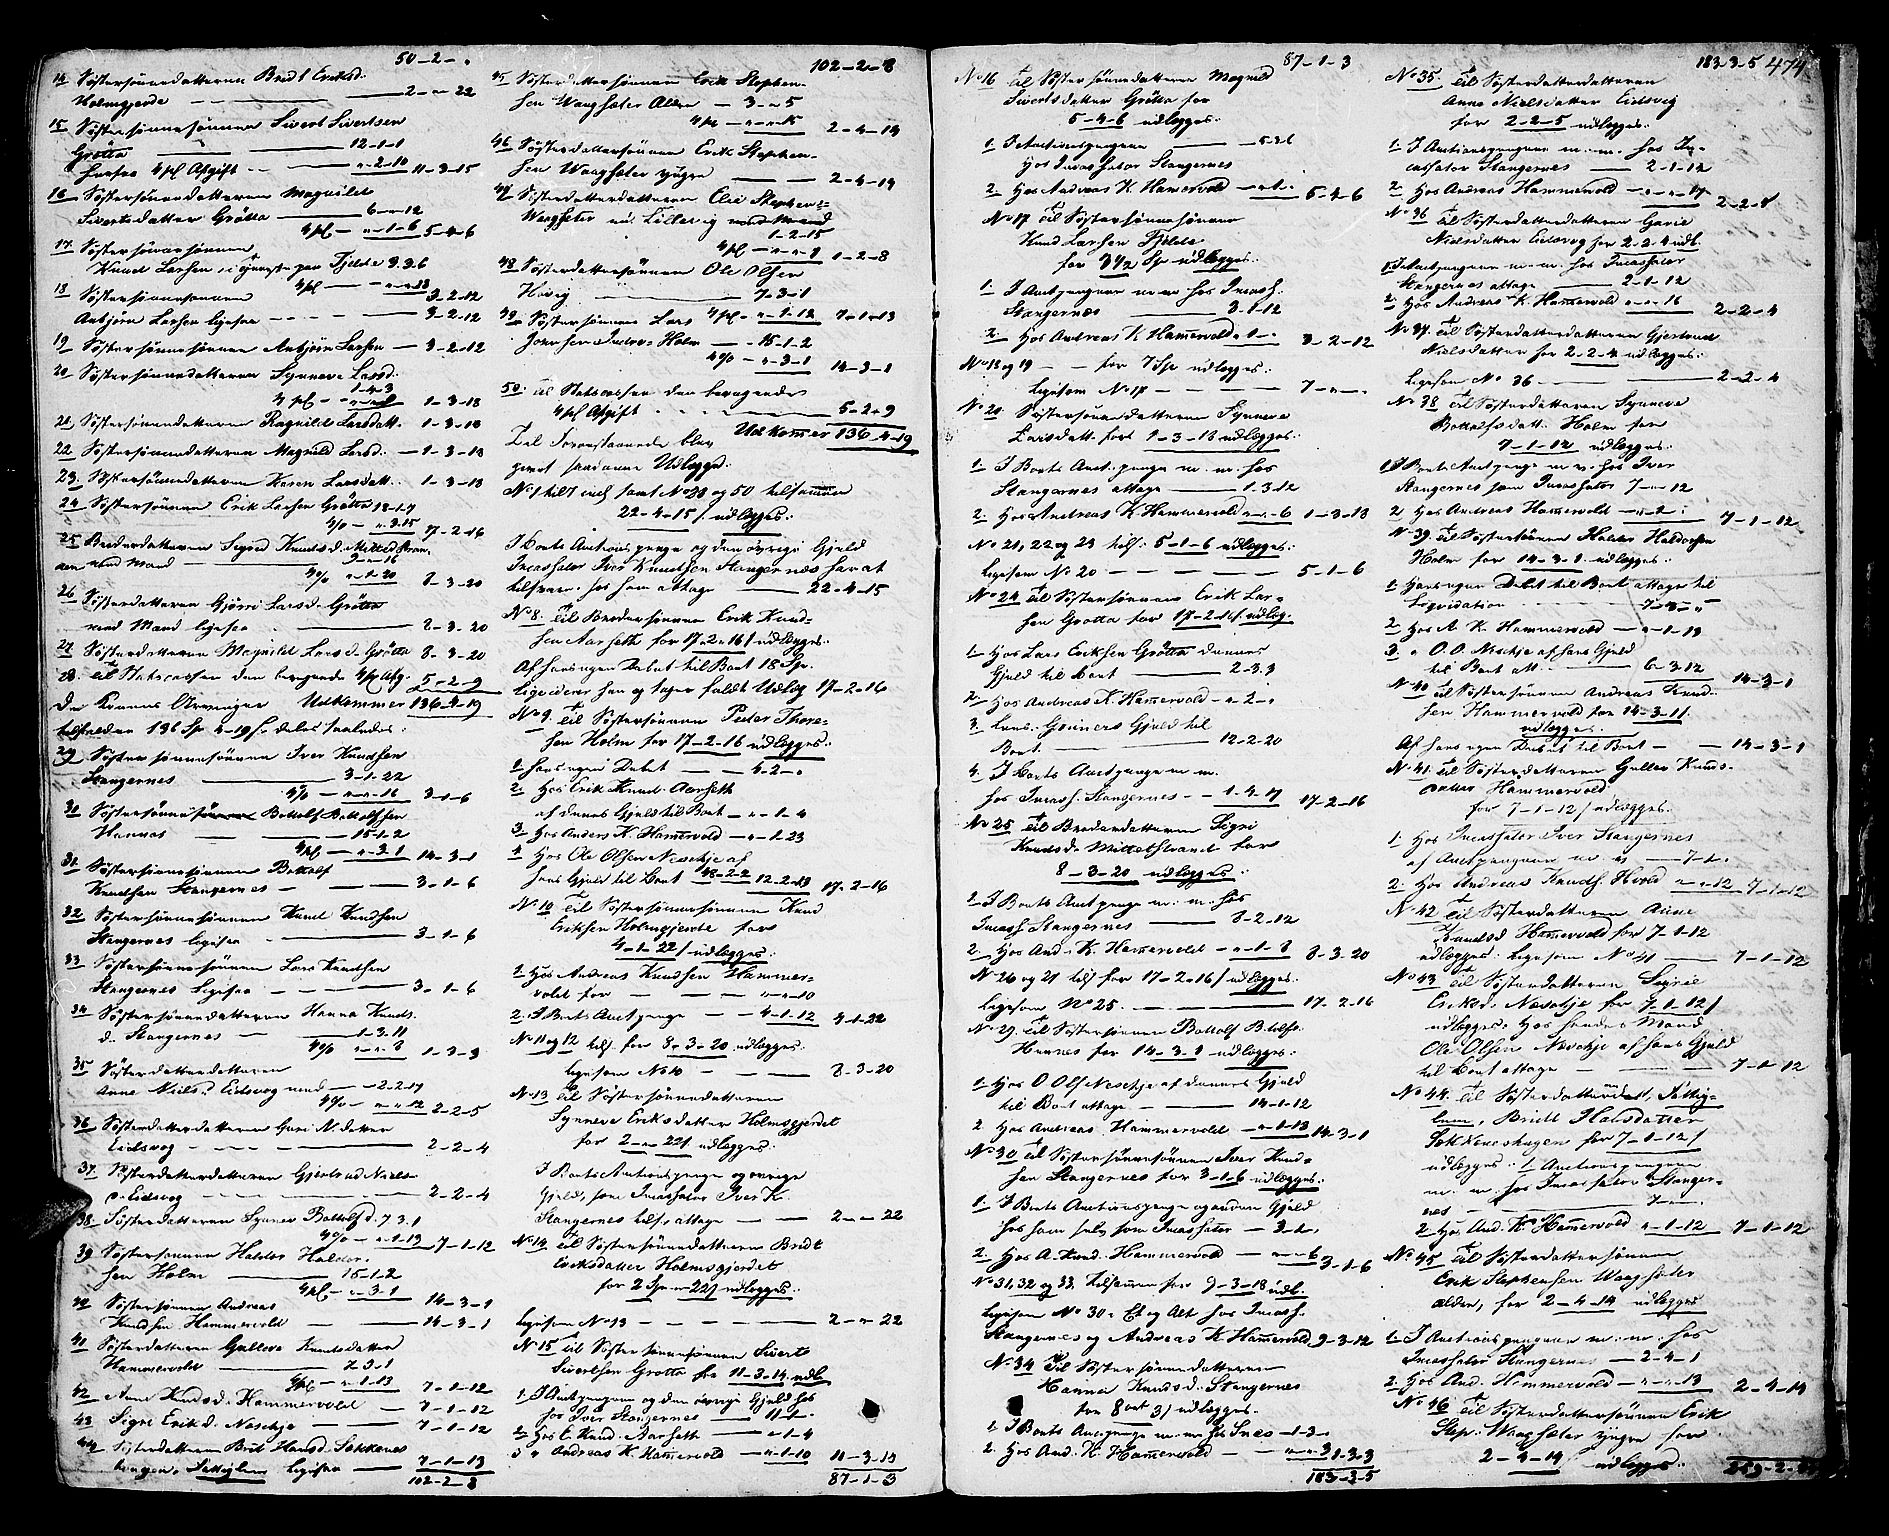 50-2-.
14 Søstersønnedatteren Brit Eriksd:
Holmgjerde — 2-"-22
15 Søstersønnesønnen Sivert Sivertsen
Grøtta — 12-1-1
4 pC Afgift — "-2-10 11-3-15
16 Søstersønnedatteren Magnild
Sivertsdatter Grøtta — 6-"-12
4 pC — "-1-6 5-4-6
17. Søstersønnesønnen
Knud Larsen, i tjeneste paa Fjelde 3.3.6
4 pC — "-"-18 3-2-12
18 Søstersønnesønnen
Anbjørn Larsen ligesaa — 3-2-12
19 Søstersønnesønnen Anbjørn Larsen — 3-2-12
20 Søstersønnedatteren Synneve Larsd.
1-4-3
4 pC — 1-3-18
21 Søstersønnedatteren Ragnild Larsdatt. 1-3-18
22 Søstersønnedatteren Magnild Larsd. — 1-3-18
23. Søstersønnedatteren Karen Larsdatt. 1-3-18
24 Søstersønnen Erik Larsen Grøtta 18-1-7
4% — "-3-15 17-2-16
25 Broderdatteren Sigrid Knudsd. Mittet
med Mand — 9-"-16
4% "-1-20 8-3-20
26 Søsterdatteren Gjøri Larsd. Grøtta
med Mand ligesaa — 8-3-20
27 Søsterdatteren Magnild Larsd. Grøtta 8-3-20
28. til Statscassen den beregnede 4 pC Afg. 5-2-9
Udkommer 136-4-19
De Konens Arvinger
tilfaldne 136 Sp 4-19 s. deles saaledes:
29 Søstersønnesønnen Iver Knudsen
Stangernes — 3-1-22
4% — "-"-16 3-1-6
30 Søstersønnen Bottolf Bottolfsen
Hannas — 15-1-2
4 pC — "-3-1 14-3-1
31. Søstersønnesønnen Bottolf
Knudsen Stangernes — 3-1-6
32 Søstersønnesønnen Knud Knudsen
Stangernes ligesaa — 3-1-6
33 Søstersønnesønnen Lars Knudsen
Stangernes ligesaa — 3-1-6
34 Søstersønnedatteren Hanna Knuds
d. Stangernes — 1-3-11
4% "-"-8 1-3-3
35 Søsterdatterdatteren
Anne Nielsd. Eidsvog med — 2-2-17
4% — "-"-12 2-2-5
36 Søsterdatterdatteren Guri N. datter
Eidsvog — 2-2-4
37. Søsterdatterdatteren Gjertrud Niels-
d. Eidsvog — 2-2-4
38. Søsterdatteren Synnev Bottolfsd. 7-3-1
4% — "-1-13 7-1-12
39. Søstersønnen Haldor Haldor-
sen Holm — 15-1-2
4 pC — "-3-1 14-3-1
40 Søstersønnen Andreas
Knudsen Hammervold — 14-3-1
41 Søsterdatteren Gullew Knudsdatter
Hammervold — 7-3-1
4 pC — "-1-13 7-1-12
42 Anne Knudsd. Hammervold — 7-1-12
43 Sigri Eriksd. Neschje — 7-1-12
44 Søsterdatteren Brit Hansd. Sekkenes-
haugen, Sættiglem ligesaa — 7-1-13
102-2-8
102-2-8
45 Søsterdattersønnen Erik Stephen-
sen Waagsæter Ældre — 3-"-5
4 pC — "-"-15 2-4-14
46 Søsterdattersønnen Erik Stephen-
sen Waagsæter yngre — 2-4-14
47 Søsterdatterdatteren Elie Stephens-
Waagsæter nu Lillevig med Mand
1-2-15
4 pC — "-"-7 1-2-8
48 Søsterdattersønnen Ole Olsen
Hovig — 7-3-1
4 pC — "-1-12 7-1-13
49 Søstersønnen Lars
Johnsen Indre-Holm — 15-1-2
4% — "-3-1 14-3-1
50: til Statscassen den beregnede
4 pC Afgift — 5-2-9
Udkommer 136-4-19
Det Foranstaaende blev
giort saadanne Udlæg:
No 1 til 7 incl. samt No 28 og 50 tilsammen
22-4-15 s. udlægges:
I Boets Auctionspenge og den øvrige Gjeld
Incassator Iver Knudsen Stangernes har at
tilsvare hos ham attage — 22-4-15
No 8. til Brodersønnen Erik Knud-
sen Aarseth for 17-2-16 s. udlægges:
Af hans egen Debet til Boet 18 Sp.
liqviderer han og tager saldt Udlæg 17-2-16
No 9. til Søstersønnen Peder Thore-
sen Holm for 17-2-16 udlægges:
1. hans egen Debet — 4-2-.
2. Hos Erik Knuds. Aarseth
af dennes Gjeld til Boet — "-1-4
3. Hos Anders K. Hamervold — "-1-23
4. Hos Ole Olsen Neschje af
hans Gjeld til Boet 48-2-2 12-2-13 17-2-16
No 10 til Søstersønnesønnen Knud
Eriksen Holmgjerde for
4-1-22 s. udlægges:
1. Hos Andreas Knudsen Hammer-
vold for — "-"-10
2. I Boets Auctpenge — 4-1-12 4-1-22
No 11 og 12 tils. for 8-3-20 udlægges:
ligesom No 10 — 8-3-20
No 13 til Søstersønnedatteren
Synneve Eriksdatter Holmsgjerdet
for 2-"-22 s. udlægges:
I Boets Auctionspenge og øvrige
Gjeld, som Incassator Iver K.
Stangernes tils. attage — 2-"-22
No 14 til Søstersønnedatteren Bridt
Eriksdatter Holmsgjerdet
for 2 Sp "-22 s udlægges:
ligesom No 13 — 2-"-22
No 15 til Søstersønnesønnen Sivert
Sivertsen Grøtta for 11-3-14 udl.
1. I Auctpengene og den øvrige Gjeld hos
hos Iver Stangernes — 11-1-.
2. Hos E. Knud. Aarseth — "-1-4
3 " Andreas K. Hamervold — "-1-10 11-3-15
87-1-3
87-1-3
No 16 til Søstersønnedatteren Magnild
Sivertsdatter Grøtta for
5-4-6 udlægges:
1. I Auctionspengene — 5-3-6
hos Incassator Stangernes
2. Hos Andreas K. Hamervold — "-1-. 5-4-6
No 17 til Søstersønnesønnen
Knud Larsen Fjelde
for 3½ Sp udlægges:
1. I Auctpengene m.m. hos Incass.
Stangernes — 3-1-12
2. Hos Andreas K Hamervold "-1-. 3-2-12
No 18 og 19 — for 7 Sp udlægges:
ligesom No 17 — 7-"-.
No 20 Søstersønnedatteren Synneve
Larsdatt. for 1-3-18 udlægges:
1. I Boets Auct.penge m.m. hos
Stangernes attage — 1-3-12
2. Hos Andreas K. Hamervold "-"-6 1-3-18
No 21, 22 og 23 tils: 5-1-6 udlægges:
ligesom No 20 — 5-1-6
No 24 til Søstersønnen Erik Lar-
sen Grøtta for 17-2-16 s. udlæg:
1. Hos Lars Eriksen Grøtta dennes
Gjeld til Boet — 2-3-3
2. Hos Andreas K. Hamervold — "-2-.
3. Gjeld til
Boet — 12-2-20
4. I Boets Auctpenge m.m.
hos Incass. Stangernes — 1-4-17 17-2-16
No 25 til Broderdatteren Sigri
Knudsd. Mittetstrand for
8-3-20 udlægges:
1. I Boets Auctpenge m.m. hos
Incass. Stangernes — 8-2-12
2. Hos And. K. Hamervold — "-1-8 8-3-20
No 26 og 27 tils. for 17-2-16 s. udlægges:
ligesom No 25. — 17-2-16
No 29 til Søstersønnen Bottolf B.tolfs.
Hannes for 14-3-1 udlægges:
1. Hos O Ols Neschje af dennes Gjeld
til Boet attage — 14-1-12
2 Hos Andreas Hammervold — "-1-13 14-3-1
No 30 til Søstersønnesønnen Iver Knud-
sen Stangernes for 3-1-6 udlægges:
1. I Boets Auctionspenge og anden Gjeld
hos ham selv som Incassator — 3-1-.
2. Hos A. Knud. Hammervold — "-"-6 3-1-6
No 31, 32 og 33 tilsamen for 9-3-18 udl.
ligesom No 30. Et og Alt hos Incass.
Stangernes og Andreas K Hamervold 9-3-12
No 34 til Søstersønnedatteren
Hanna Knudsd. Stangernes
for 8 ort 3 s. udlægges:
1. I Boets Auctpenge m.m. hos — 1-3-.
2. Hos And. K. Hamervold — "-"-3 1-3-3
183-3-5
183-3-5 474
No 35. til Søsterdatterdatteren
Anne Nielsdatter Eidsvig
for 2-2-5 udlægges:
1. I Auctionspengene m.m. hos In-
cassator Stangernes — 2-1-12
2. Hos Andreas Hammervold — "-"-17 2-2-5
No 36 til Søsterdatterdatteren Guri
Nielsdatter Eidsvog for 2-2-4 udl.
1. I Auctpengene m.m. hos Incassator
Stangernes attage — 2-1-12
2. Hos Andreas K. Hammervold "-"-16 2-2-4
No 37. til Søsterdatterdatteren Gjertrud
Nielsdatter for 2-2-4 udlægges:
ligesom No 36 — 2-2-4
No 38 til Søsterdatteren Synneve
Bottolfsdatt. Holm for
7-1-12 udlægges:
1. I Boets Auctpenge m m. hos Iver
Stangernes som Incassator 7-"-12
2 Hos Andreas Hamervold — "-2-. 7-1-12
No 39. til Søstersønnen Haldor Haldorsen
Holm for 14-3-1 udlægges:
1. Hans egen Debet til Boet attage til
Liqvidation — 7-3-"
2. Hos A. K. Hammervold — "-1-13
3. " O. O. Neschje af hans Gjeld
til Boet att. — 6-3-12 14-3-1
No 40 til Søstersønnen Andreas Knud-
sen Hammervold for 14-3-11
udlægges:
Af hans egen Debet til Boet — 14-3-1
No 41. til Søsterdatteren Gullew Knuds-
datter Hammervold
for 7-1-12 s. udlægges:
1. Hos Incassator Iver Stangernes
af Auctpengene — 7-1-.
2. Hos Andreas Knuds. H.vold "-"-12 7-1-12
No 42 til Søsterdatteren Anne
Knudsd. Hamervold for 7-1-12
udlægges: ligesom No 41 — 7-1-12
No 43 til Søsterdatteren Sigrie
Eriksd. Neschje for 7-1-12 s
udlægges: Hos hendes Mand
Ole Olsen Neschje af hans Gjeld
til Boet attage — 7-1-12
No 44. til Søsterdatteren, Sættig-
lem, Bridt Hansdatter
Sekkeneshagen for 7-1-12 s
udlægges: 1. Auctionspengene
m. m. hos Incassator Stanger-
nes — 7-"-.
2. Hos And. K. Hamervold "-1-12 7-1-12
No 45 til Søsterdattersønnen
Erik Stephensen Waagsæter
ældre, for 2-4-14 udlægges
1. I Auctionspengene m.m. hos
Incassator Stangernes — 2-4-1
2. Hos And. Hammervold — "-"-13 2-4-14
No 46 til Søsterdattersønnen Erik
Step. Waagsæter yngre for
2-4-14 udlægges: